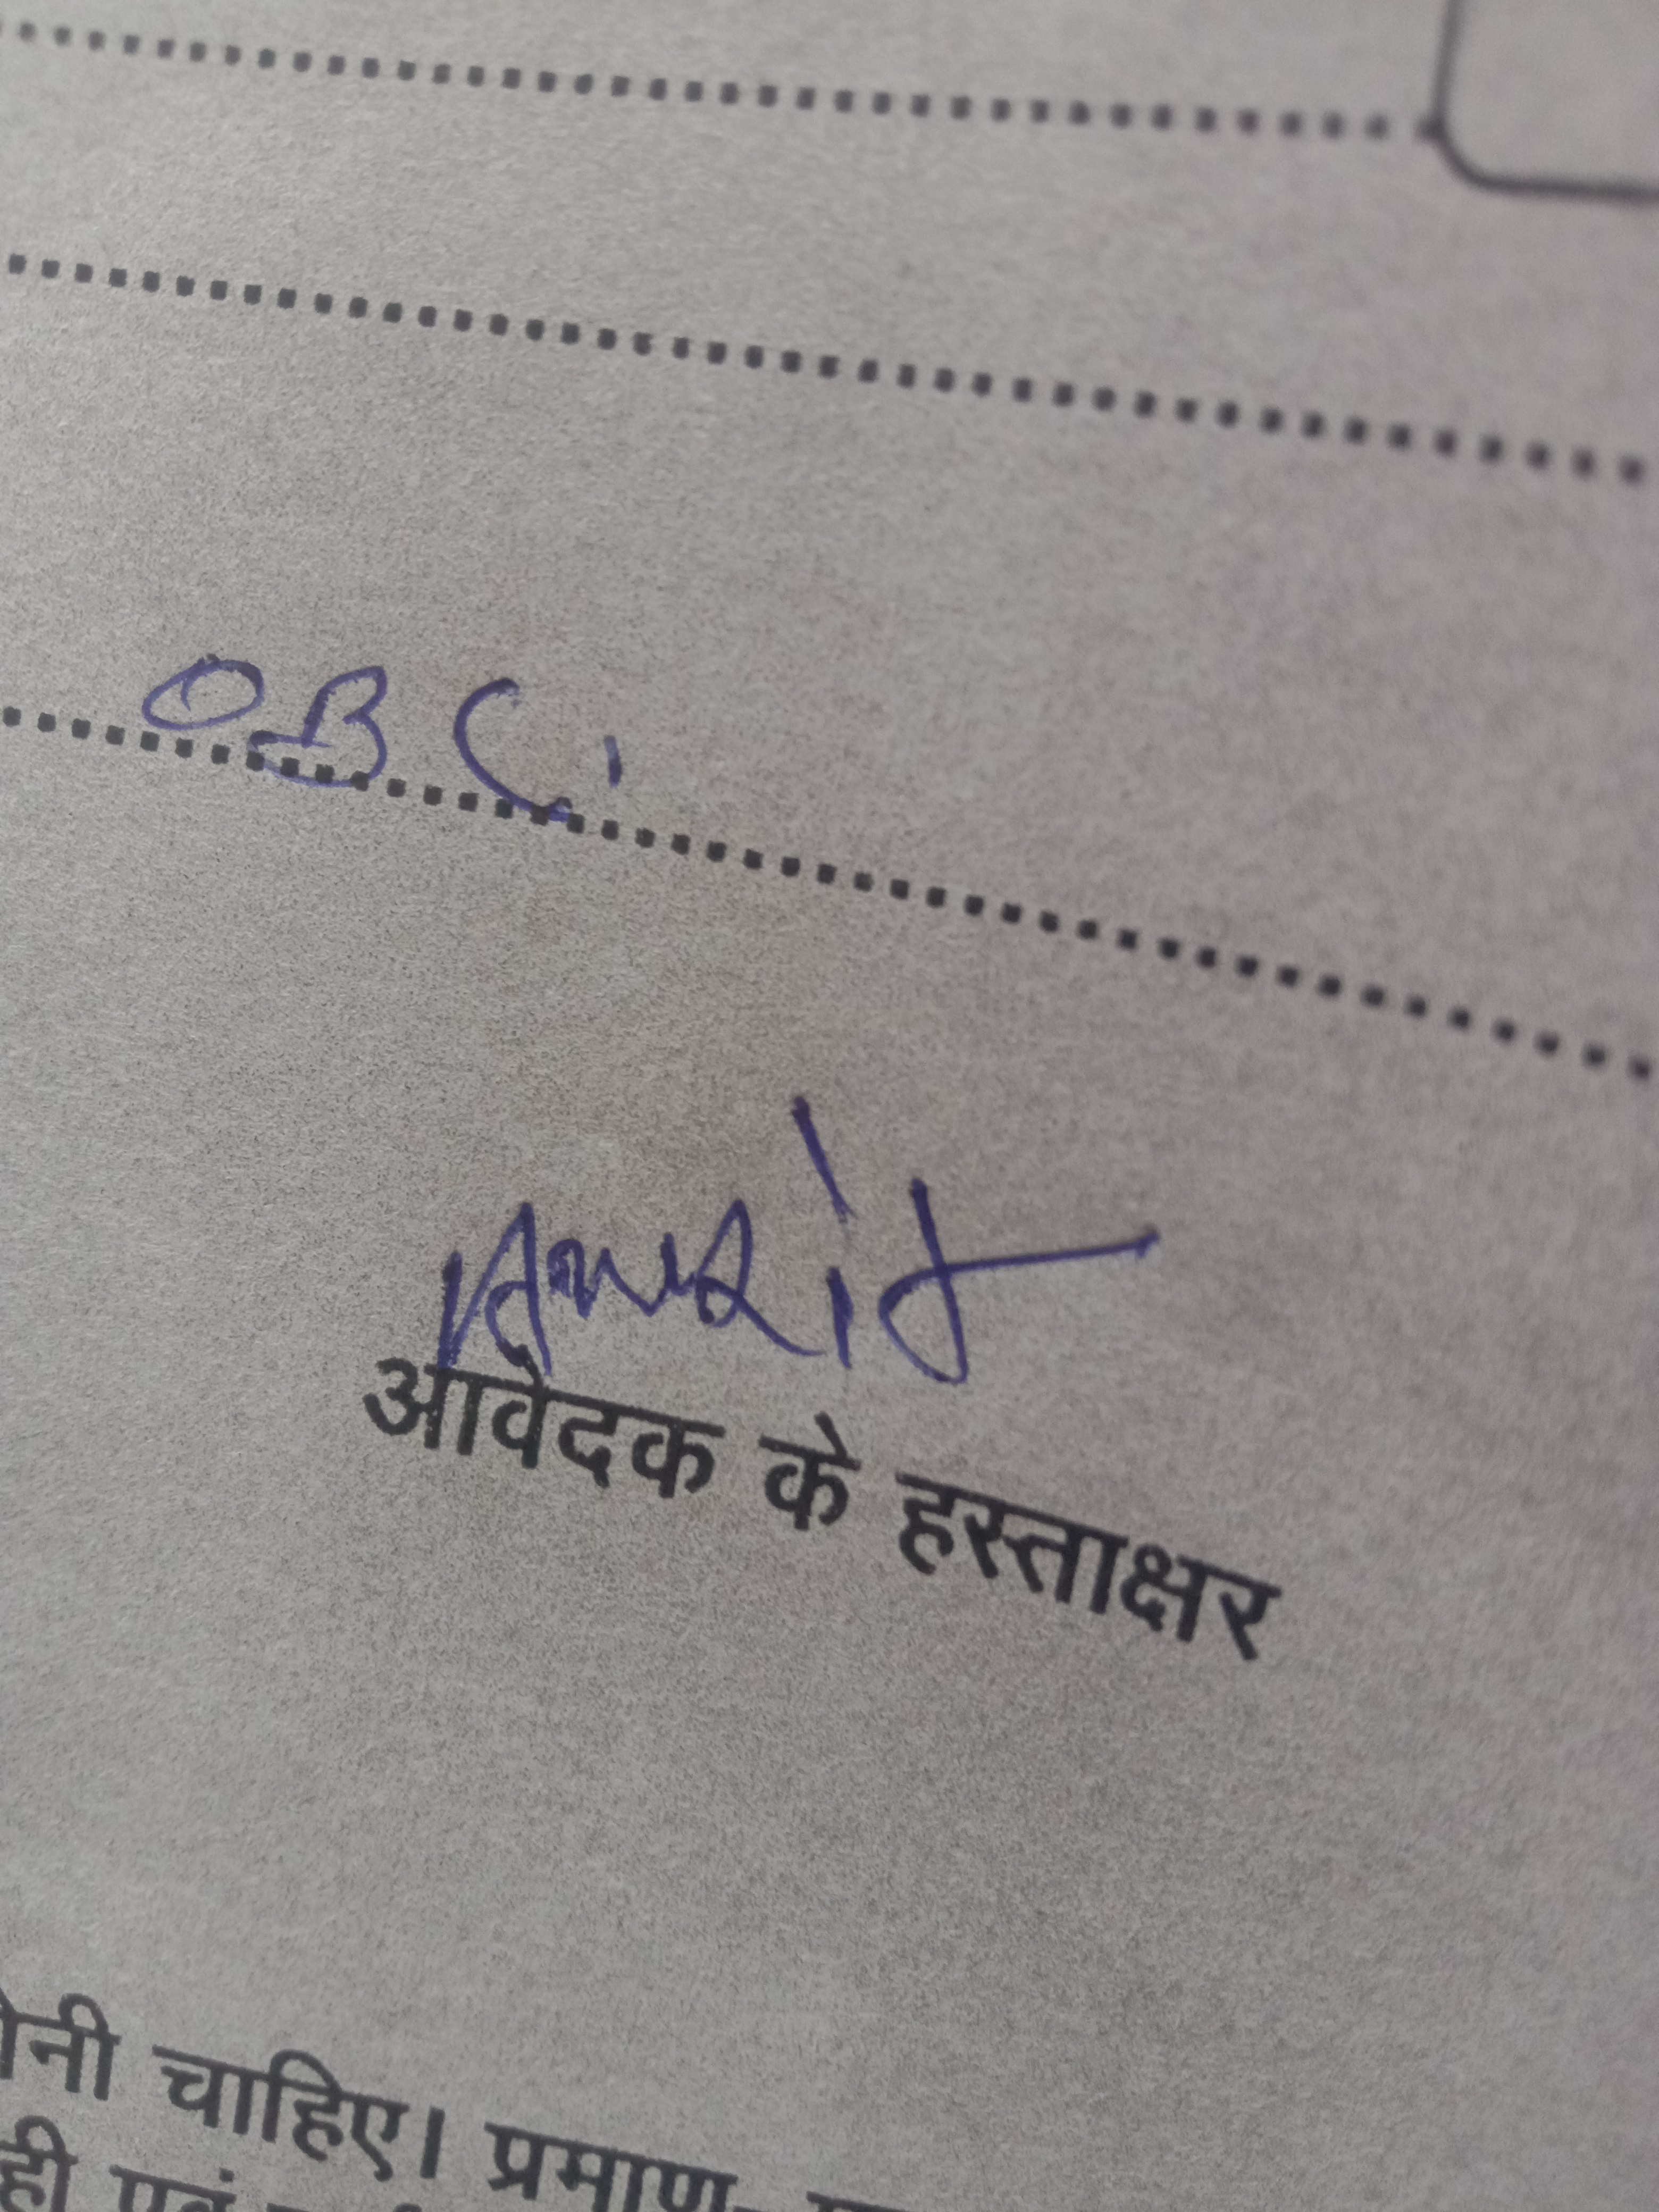 OBC.
Amrit
आवेदक के हस्ताक्षर
चाहिए। प्रमाण-
ही एवं